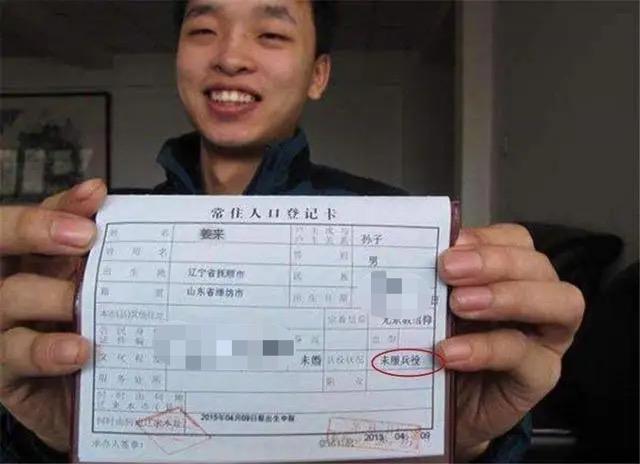 常住人口登记卡
姓名 姜来 户主或与户主关系 孙子
曾用名 性别 男
出生地 辽宁省抚顺市 民族
籍贯 山东省潍坊市 出生日期 日
本市(县)其他住址 宗教信仰 无宗教信仰
公民身 证件编 身高 血型
文化程 未婚 兵役状况 未服兵役
服务处所 职业
何时由何地
迁来本市(县)
何时由何地迁来本址 2015年04月09日报出生申报
承办人签章: 2015 04 09